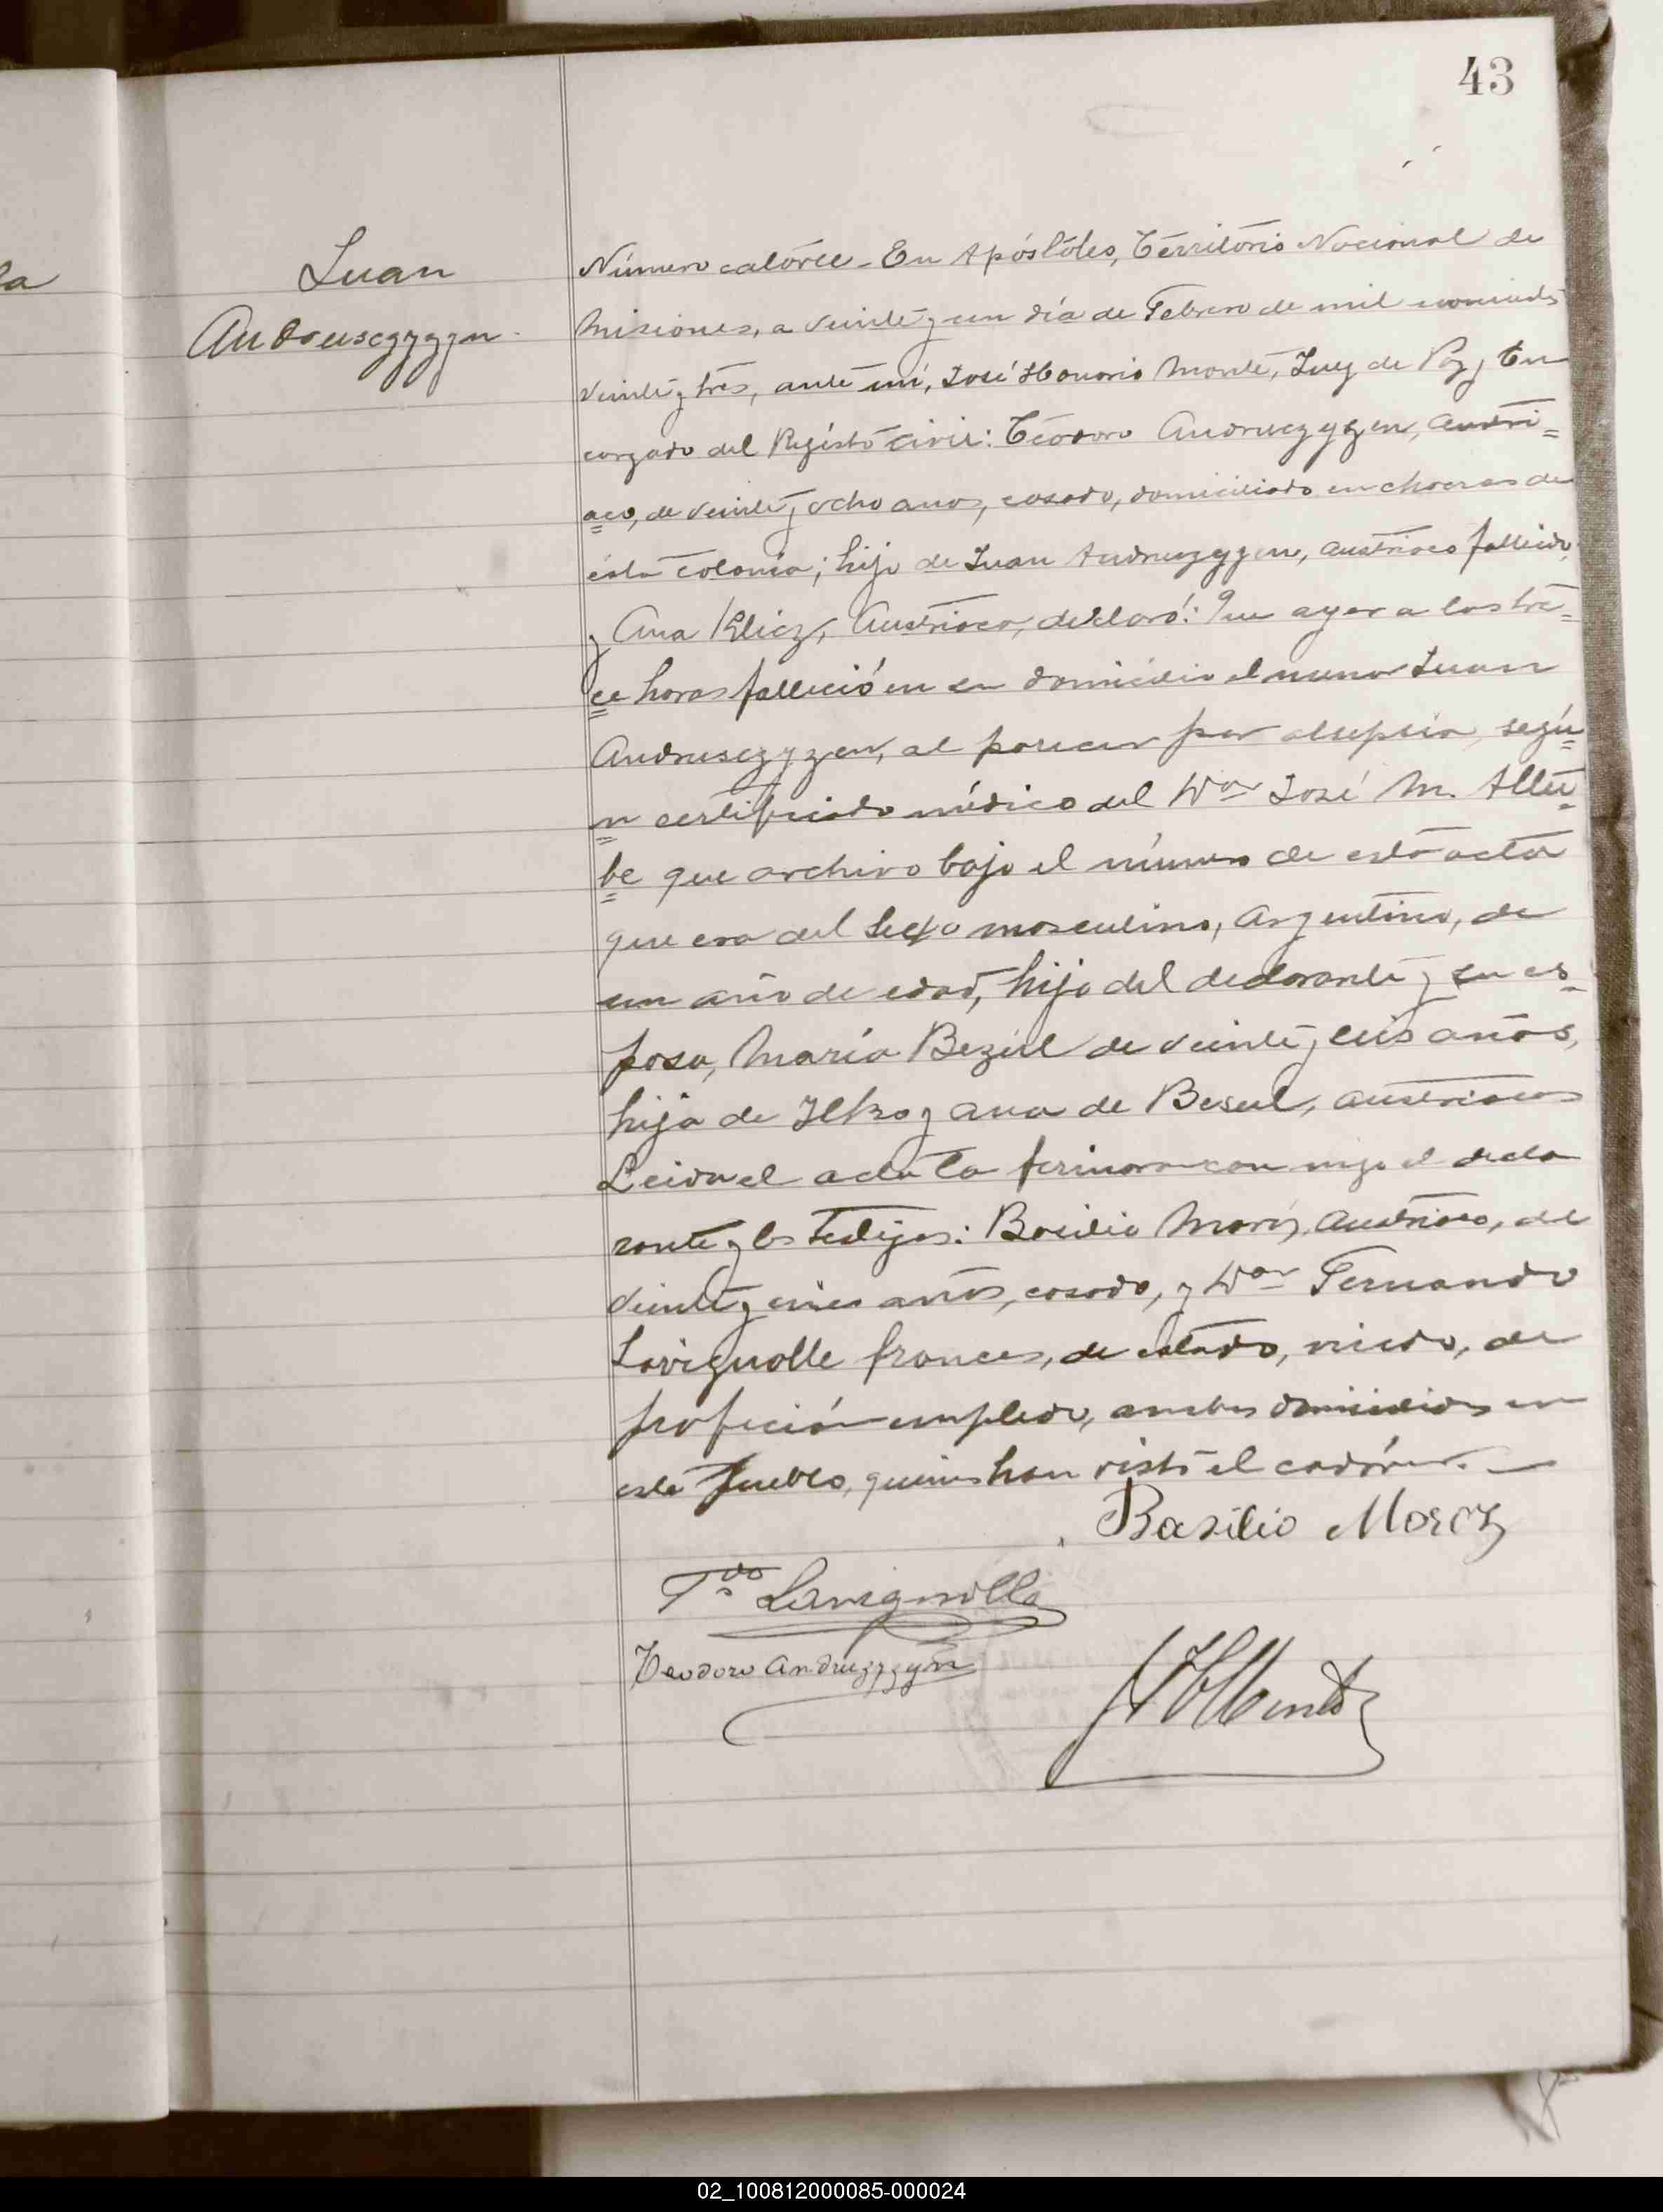 43
la
Juan
Andrusczyzyn
Número catorce - En Apóstoles, Território Nacional de
Misiones, a veinte y un día de Febrero de mil novecientos
veinte y tres, ante mí, José Honorio Monte, Juez de Paz y En
cargado del Registo Civil: Teodoro Andruczyzen, austri=
aco, de veinte y ocho anos, casado, domiciliado en chacras de
ésta colonia; hijo de Juan Andruczyzen, austriaco fallecido,
y Ana Klicz, Austriaca, declaró: Que ayer a las tre=
ce horas falleció en su domicilio el menor Juan
Andrusczyzen, al parecer por , segú=
n certificado médico del Dor José M.
be que archivo bajo el número de esta acta
que era del sexo masculino, Argentino, de
un año de edad, hijo del declarante y su es-
posa, María Bezul de veinte y seis años,
hija de Ilko y Ana de Besul, austriacos
Leida el acta la firmaron con migo el decla
rante y los testigos: Basilio Moroz, Austriaco, de
veinte y cinco años, casado, y Dor Fernando
Lavignolle frances, de estado, viudo, de
profición empleado, ambos domiciliados en
este Pueblo, quienes han visto el cadáver. —
Basilio Moroz
Fdo Lavignolle
Teodoro Andruzyzyn
JHMonte
02_100812000085-000024